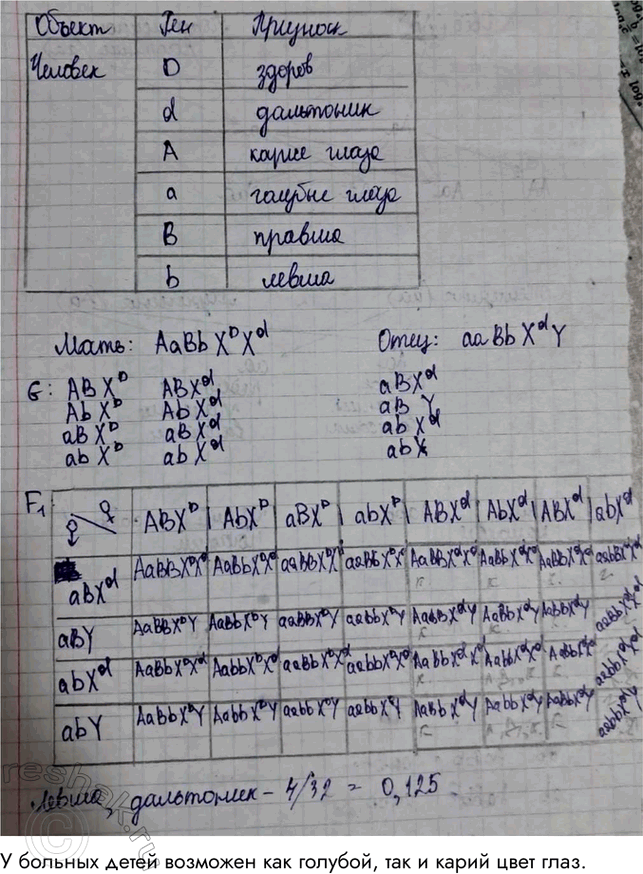 Объект Ген Признак
Человек D здоров
d дальтоник
A карие глаза
a голубые глаза
B правша
b левша
Мать: AaBb XᴰXᵈ Отец: aaBb XᵈY
G: ABXᴰ ABXᵈ aBXᵈ
AbXᴰ AbXᵈ aB Y
aBXᴰ aBXᵈ abXᵈ
abXᴰ abXᵈ
F₁ ♀ ABXᴰ AbXᴰ aBXᴰ abXᴰ ABXᵈ AbXᵈ ABXᵈ abXᵈ
aBXᵈ AaBBXᴰXᵈ AaBbXᴰXᵈ aaBBXᴰXᵈ aaBbXᴰXᵈ AaBBXᵈXᵈ AaBbXᵈXᵈ
aBY AaBBXᴰY AaBbXᴰY aaBBXᴰY aaBbXᴰY AaBBXᵈY AaBbXᵈY
abXᵈ AaBbXᴰXᵈ AabbXᴰXᵈ aaBbXᴰXᵈ aabbXᴰXᵈ AaBbXᵈXᵈ AabbXᵈXᵈ
abY AaBbXᴰY AabbXᴰY aabbXᴰY AaBbXᵈY AabbXᵈY
Левша, дальтоник - 4/32 = 0,125
reshak.ru
У больных детей возможен как голубой, так и карий цвет глаз.